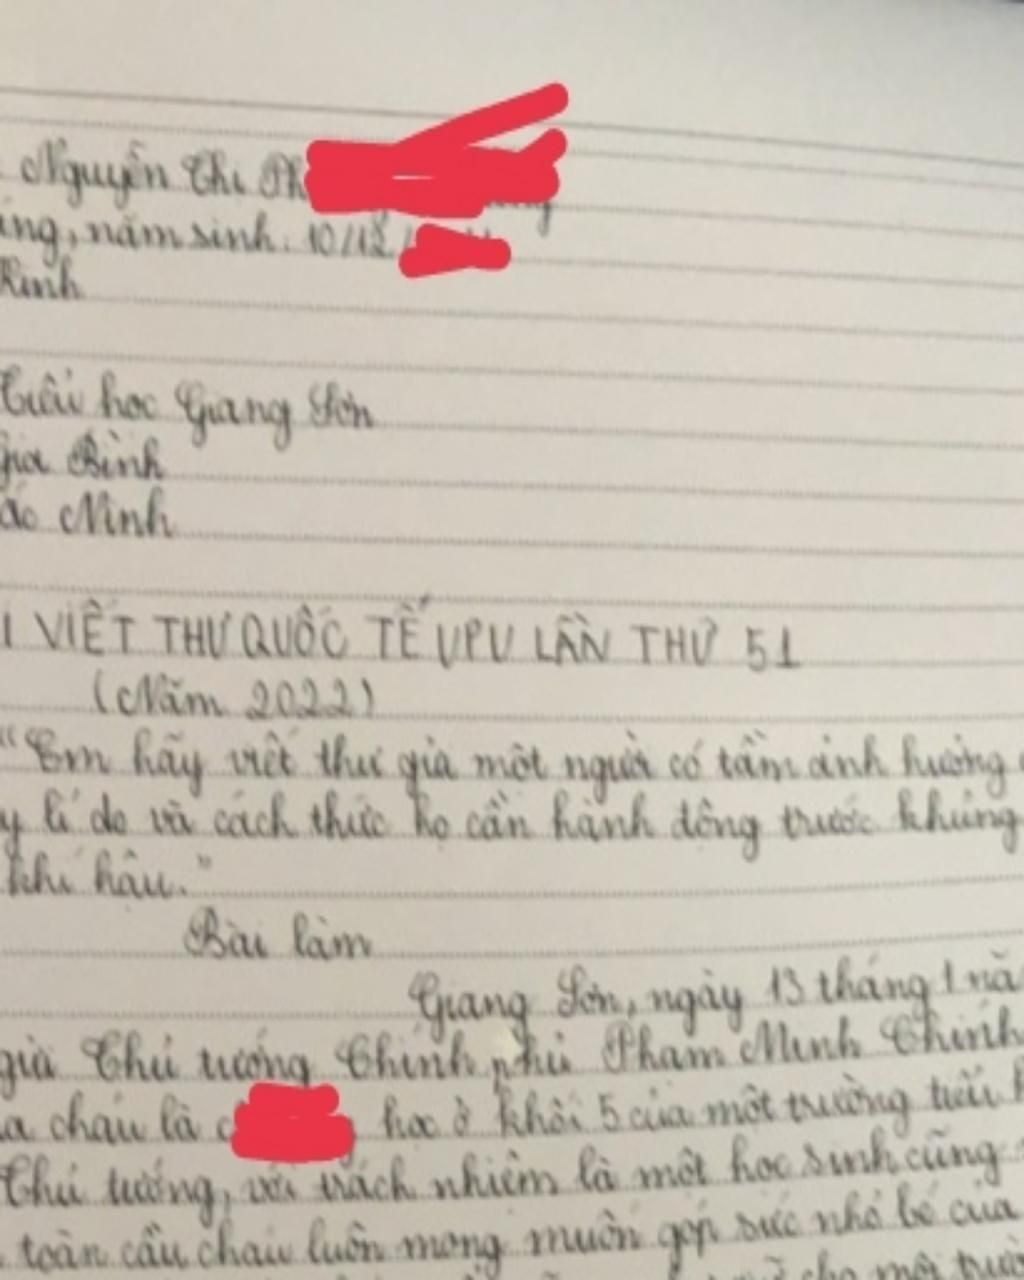 Nguyễn Thị Ph
áng, năm sinh: 10/12/
Kinh
Tiểu học Giang Sơn
Gia Bình
ắc Ninh
I VIẾT THƯ QUỐC TẾ UPU LẦN THỨ 51
(Năm 2022)
"Em hãy viết thư gửi một người có tầm ảnh hưởng
y lí do và cách thức họ cần hành động trước khủng
khí hậu."
Bài làm
Giang Sơn, ngày 13 tháng 1 nă
gửi Thủ tướng Chính phủ Phạm Minh Chính
a cháu là c học ở khối 5 của một trường tiểu h
Thủ tướng, với trách nhiệm là một học sinh cũng
toàn cầu cháu luôn mong muốn góp sức nhỏ bé của
cho môi trườ